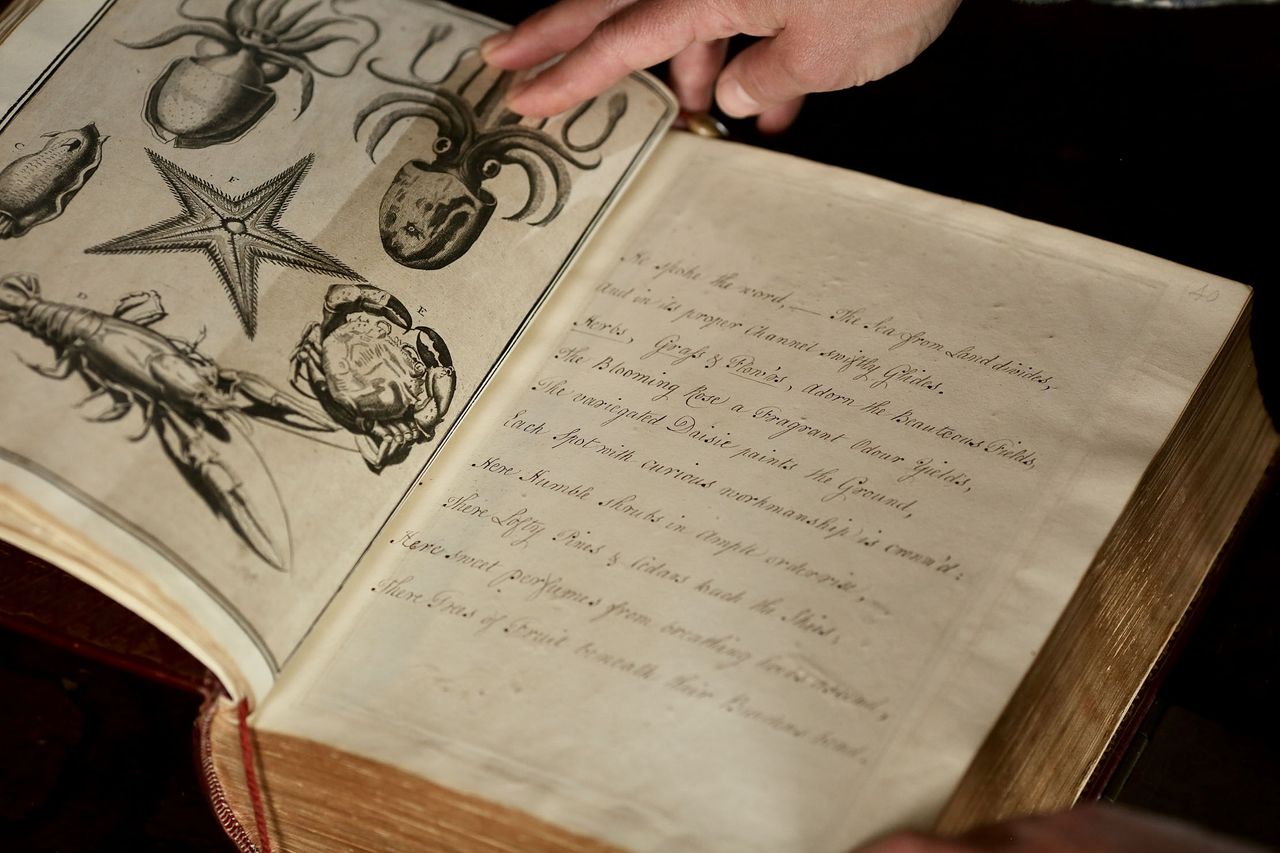 C
F
D
E
40
He spoke the word,— The Sea from Land divides,
And in its proper Channel swiftly Glides.
Herbs, Graſs & Flow'rs, adorn the Beauteous Fields,
The Blooming Rose a Fragrant Odour Yields,
The variegated Daisie paints the Ground,
Each Spot with curious workmanship is crown'd:
Here Humble shrubs in Ample order rise,—
There Lofty Pines & Cedars touch the Skies.
Here sweet perfumes from breathing herbs
There Trees of Fruit beneath their Burdens bend.